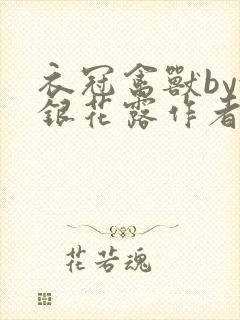 衣冠禽獸by
銀花露作者
花若魂